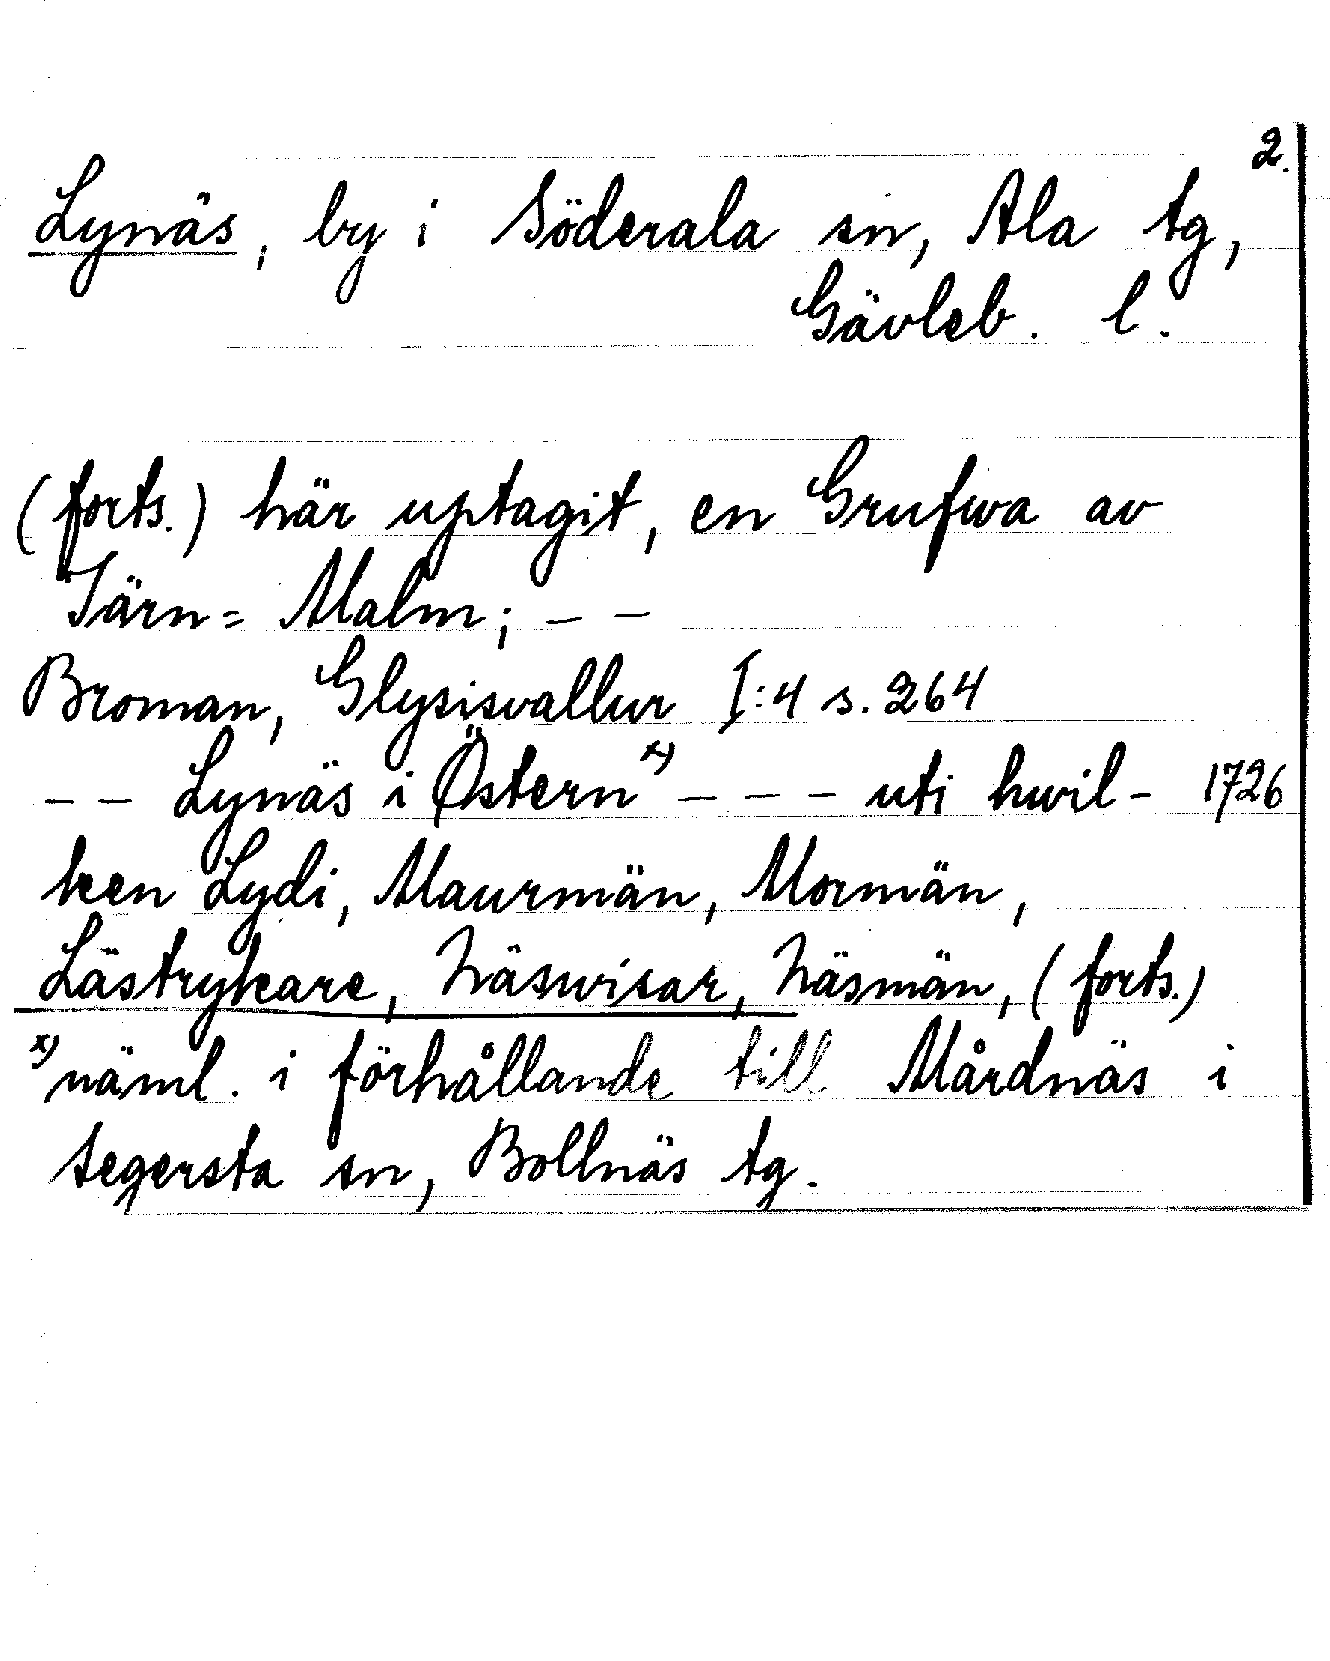 2.
Lynäs, by i Söderala sn, Ala tg,
Gävleb. l.
(forts.) här uptagit, en Grufwa av
Järn= Malm; – –
Broman, Glysisvallur I:4 s. 264
– – Lynäs i Östern x) – – – uti hwil- 1726
ken Lydi, Maurmän, Mormän,
Lästrykare, Näswisar, Näsmän, (forts.)
x) näml. i förhållande till Mårdnäs i
Segersta sn, Bollnäs tg.